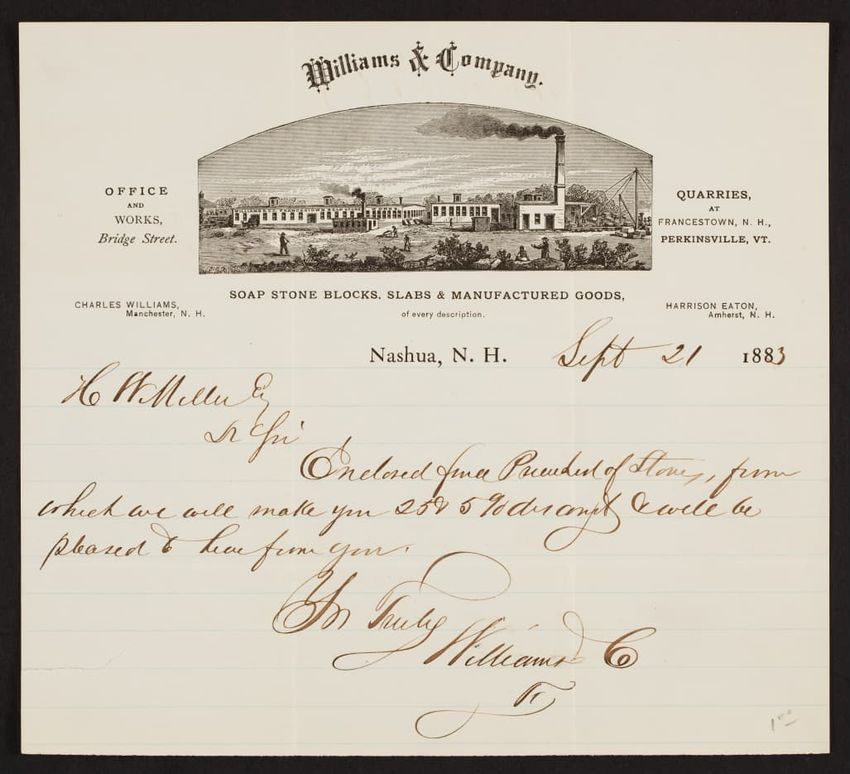 Williams & Company.
OFFICE
AND
WORKS,
Bridge Street.
QUARRIES,
AT
FRANCESTOWN, N. H.,
PERKINSVILLE, VT.
SOAP STONE BLOCKS, SLABS & MANUFACTURED GOODS,
of every description.
CHARLES WILLIAMS,
Manchester, N. H.
HARRISON EATON,
Amherst, N. H.
Nashua, N. H. Sept 21 1883
H W Miller Esq
Dr Sir
Enclosed find Price list of Stoves, from
which we will make you 25 & 5 % discount & will be
pleased to hear from you.
Yrs Truly
Williams & Co